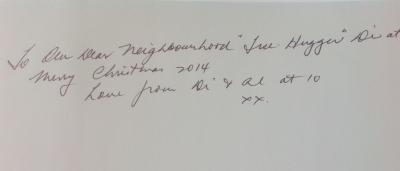 To Our Dear Neighbourhood "Tree Hugger" Di at
Merry Christmas 2014
Love from Di & Al at 10
xx.